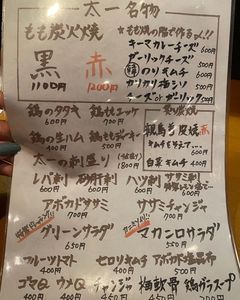 太一名物
もも炭火焼
黒
1100円
赤
1200円
★もも焼の脂で作るメシ!!
キーマカレーチーズ 600円
ガーリックチーズ 500円
のりキムチ
カリカリ梅シソ
チーズorガーリック 500円
鶏のタタキ
鶏もユッケ 700円
鶏の生ハム
鶏ももジャーキー 500円
太一の刺盛り
親鳥 炭焼 赤
白菜キムチ
レバ刺
砂肝刺
ハツ刺
ササミ刺
アボカドササミ 700円
ササミチャンジャ 700円
グリーンサラダ 650円
マカロニサラダ 450円
フルーツトマト 400円
セロリキムチ 400円
アボカド塩昆布 500円
ゴマQ
ウメQ
チャンジャ
梅軟骨
鶏ガラスープ